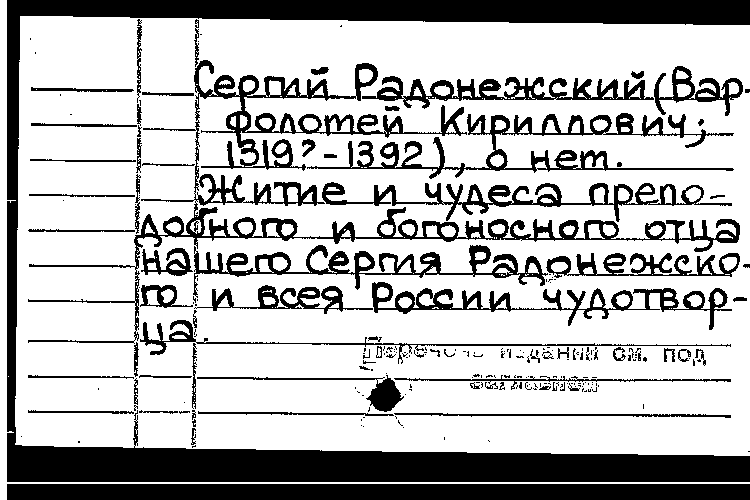 Сергий Радонежский (Вар-
фоломей Кириллович;
1319?-1392), о нем.
Житие и чудеса препо-
добного и богоносного отца
нашего Сергия Радонежско-
го и всея России чудотвор-
ца.
Перечень изданий см. под
заглавием